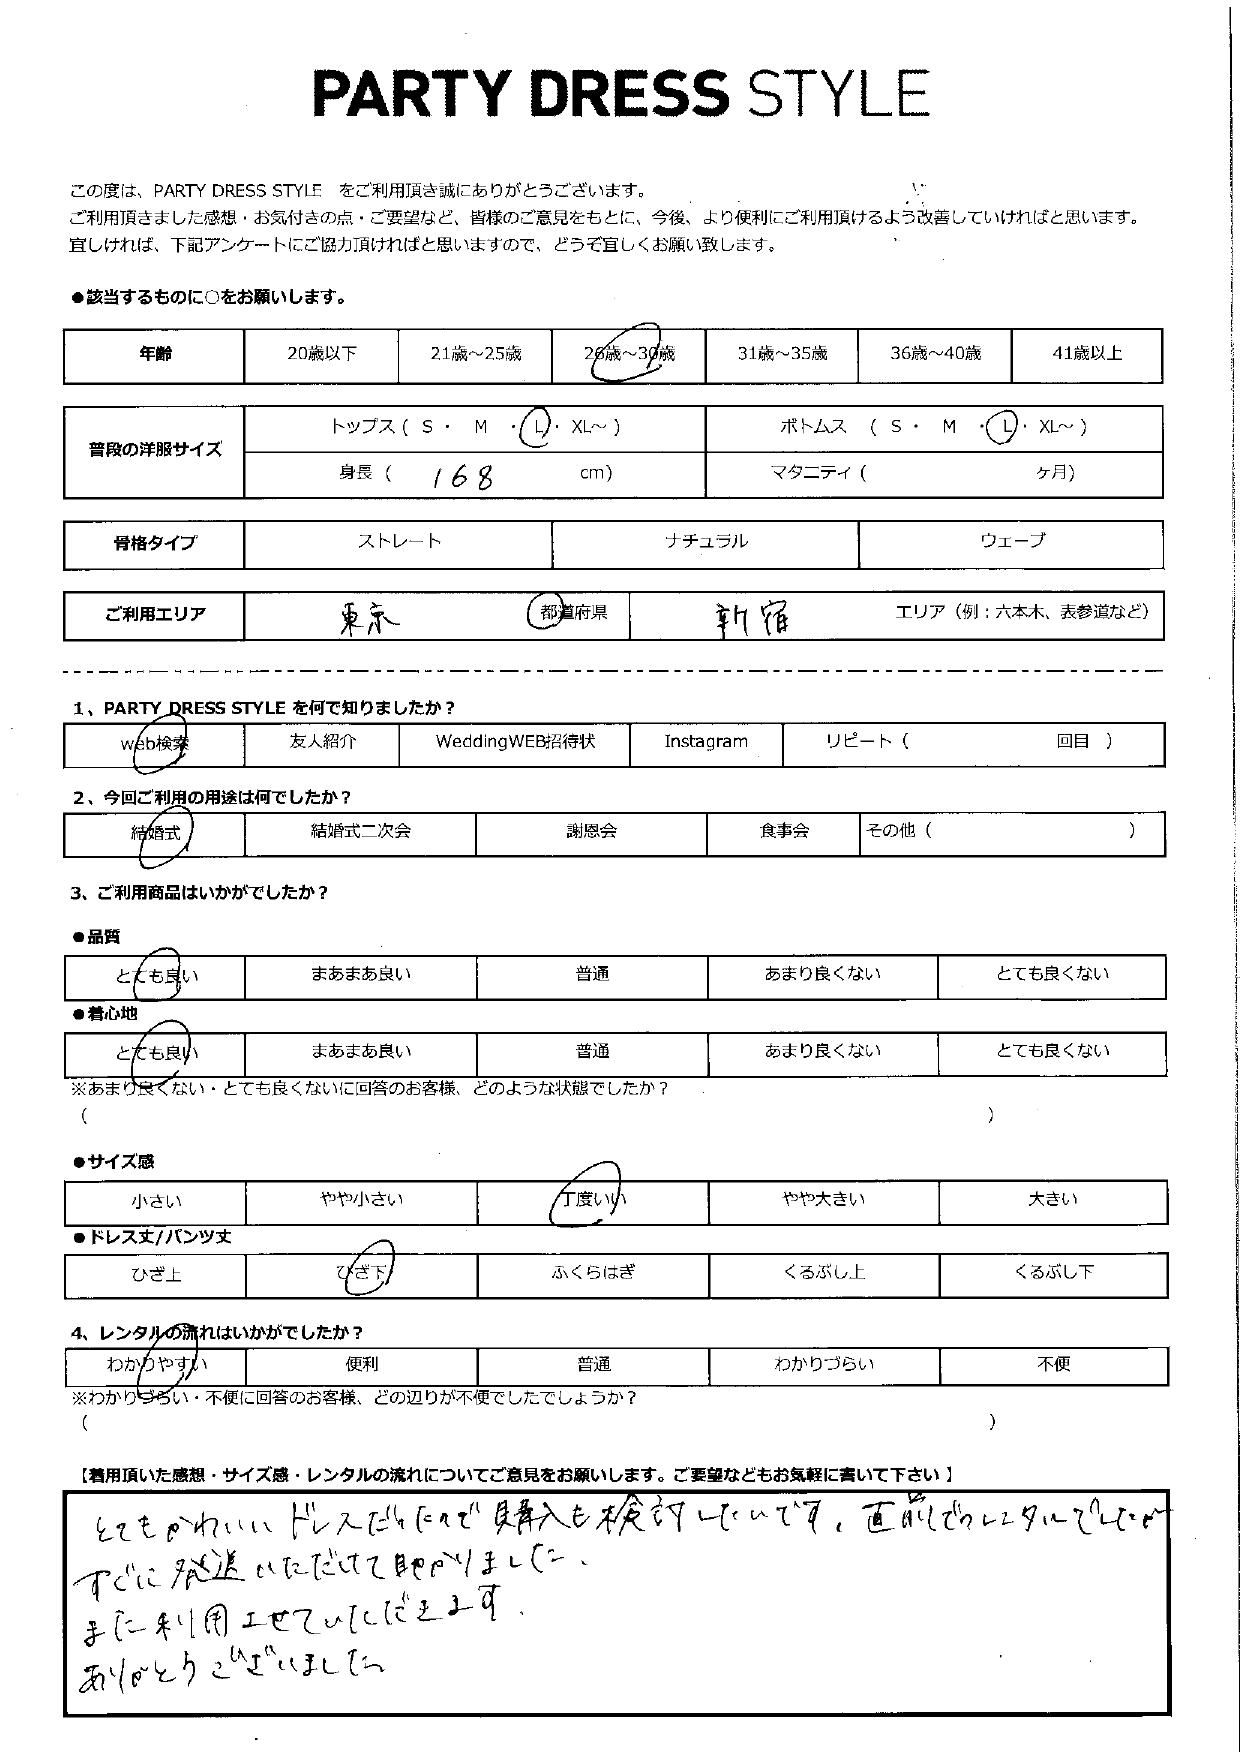 PARTY DRESS STYLE
この度は、PARTY DRESS STYLE をご利用頂き誠にありがとうございます。
ご利用頂きました感想・お気付きの点・ご要望など、皆様のご意見をもとに、今後、より便利にご利用頂けるよう改善していければと思います。
宜しければ、下記アンケートにご協力頂ければと思いますので、どうぞ宜しくお願い致します。
●該当するものに○をお願いします。
年齢 20歳以下 21歳～25歳 26歳～30歳 31歳～35歳 36歳～40歳 41歳以上
普段の洋服サイズ トップス ( S ・ M ・ L ・ XL～ ) ボトムス ( S ・ M ・ L ・ XL～ )
身長 ( 168 cm) マタニティ ( ケ月)
骨格タイプ ストレート ナチュラル ウェーブ
ご利用エリア 東京 都道府県 新宿 エリア（例：六本木、表参道など）
1、PARTY DRESS STYLE を何で知りましたか？
web検索 友人紹介 WeddingWEB招待状 Instagram リピート ( 回目 )
2、今回ご利用の用途は何でしたか？
結婚式 結婚式二次会 謝恩会 食事会 その他 ( )
3、ご利用商品はいかがでしたか？
●品質
とても良い まあまあ良い 普通 あまり良くない とても良くない
●着心地
とても良い まあまあ良い 普通 あまり良くない とても良くない
※あまり良くない・とても良くないに回答のお客様、どのような状態でしたか？
( )
●サイズ感
小さい やや小さい 丁度いい やや大きい 大きい
●ドレス丈/パンツ丈
ひざ上 ひざ下 ふくらはぎ くるぶし上 くるぶし下
4、レンタルの流れはいかがでしたか？
わかりやすい 便利 普通 わかりづらい 不便
※わかりづらい・不便に回答のお客様、どの辺りが不便でしたでしょうか？
( )
【着用頂いた感想・サイズ感・レンタルの流れについてご意見をお願いします。ご要望などもお気軽に書いて下さい】
とてもかわいいドレスだったので購入も検討したいです。直前でのレンタルでしたが
すぐに発送いただけて助かりました。
また利用させていただきます。
ありがとうございました